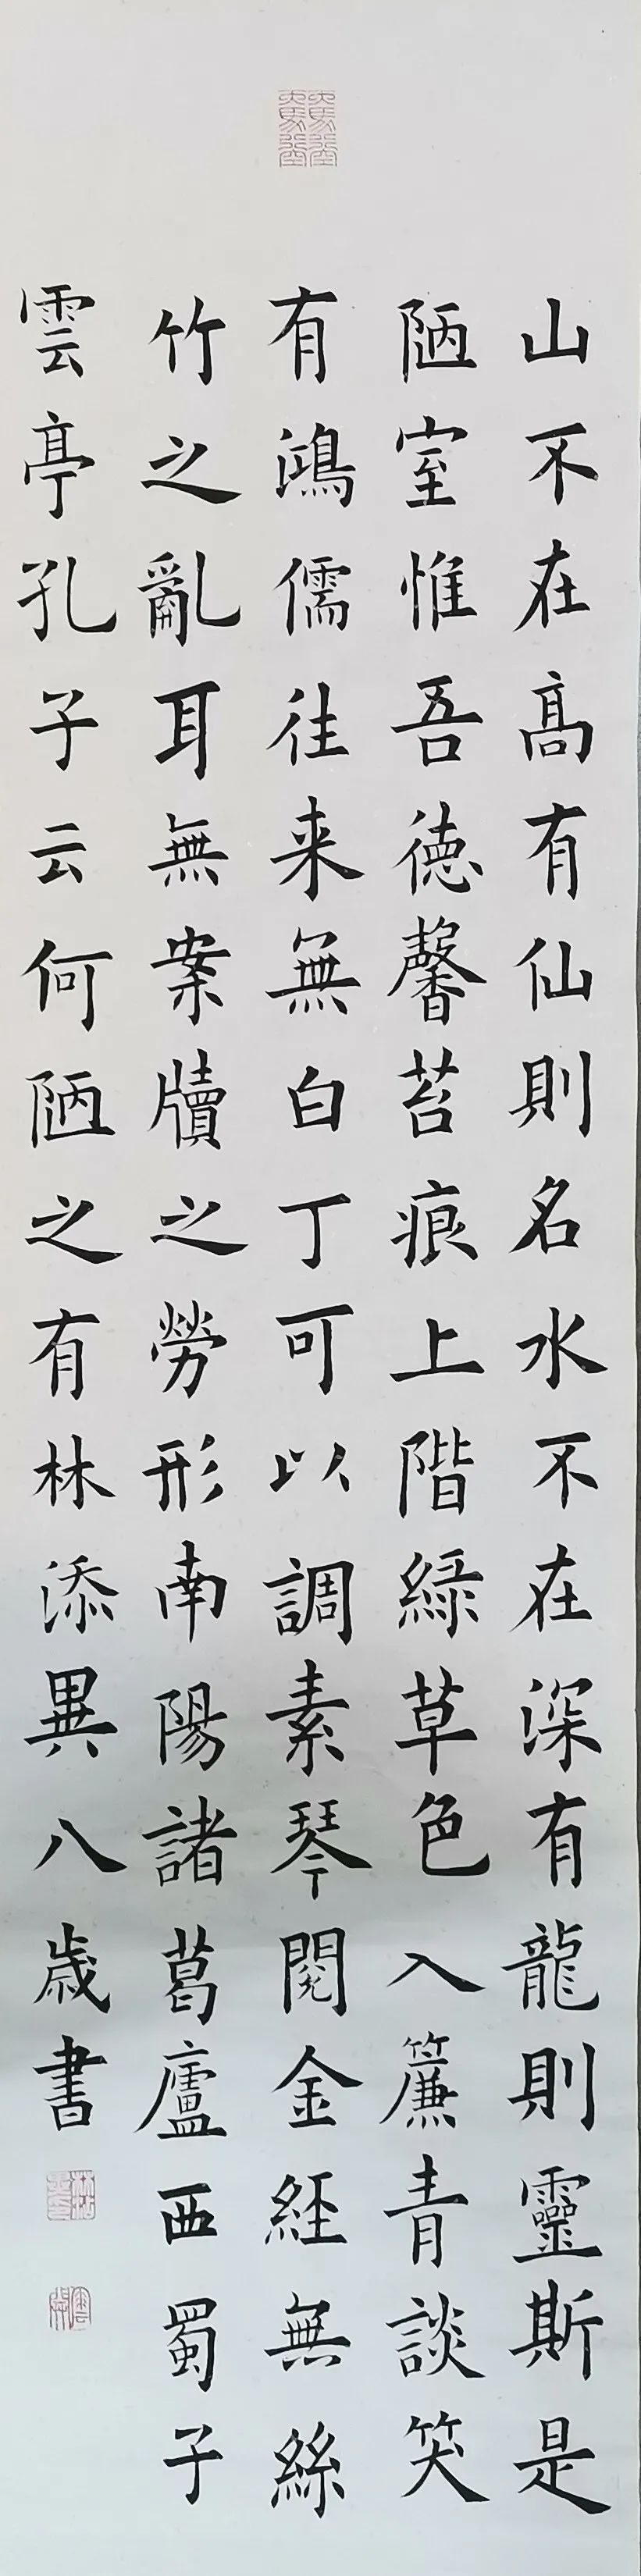 山不在高有仙則名水不在深有龍則靈斯是
陋室惟吾德馨苔痕上階綠草色入簾青談笑
有鴻儒往来無白丁可以調素琴閱金経無絲
竹之亂耳無案牘之勞形南陽諸葛廬西蜀子
雲亭孔子云何陋之有林添異八歳書